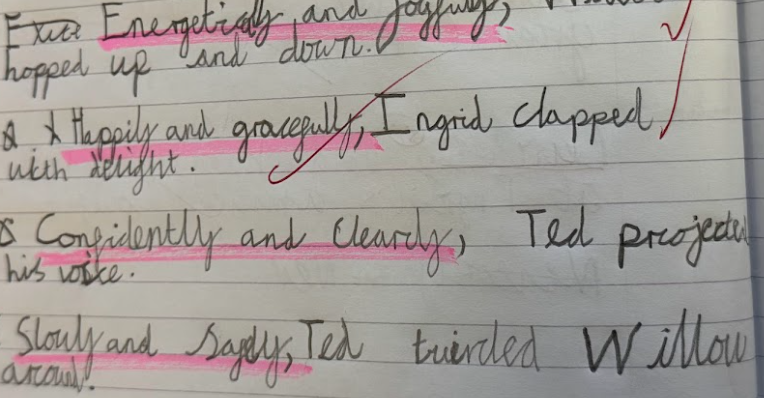 Energetically and joyfully,
hopped up and down.
Happily and gracefully, Ingrid clapped
with delight.
Confidently and Clearly, Ted projected
his voice.
Slowly and safely, Ted twirled Willow
around.